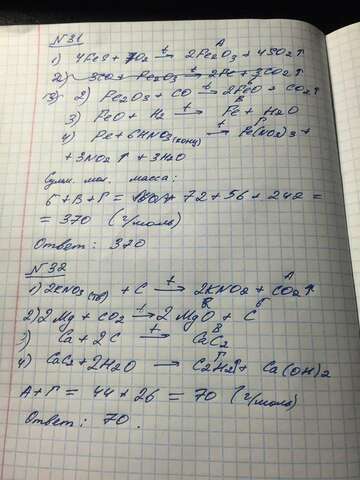 N31
А
1) 4FeS + 7O2 t→ 2Fe2O3 + 4SO2↑
2) 3CO + Fe2O3 t→ 2Fe + 3CO2↑
Б
2) Fe2O3 + CO t→ 2FeO + CO2↑
В
3) FeO + H2 t→ Fe + H2O
Г
4) Fe + 6HNO3(конц) t→ Fe(NO3)3 +
+ 3NO2↑ + 3H2O
Сумм. мол. масса:
Б + В + Г = 72 + 56 + 242 =
= 370 (г/моль)
Ответ: 370
N32
А
1) 2KNO3(тв) + C t→ 2KNO2 + CO2↑
Б
2) 2Mg + CO2 t→ 2MgO + C
В
3) Ca + 2C t→ CaC2
Г
4) CaC2 + 2H2O → C2H2↑ + Ca(OH)2
А + Г = 44 + 26 = 70 (г/моль)
Ответ: 70.